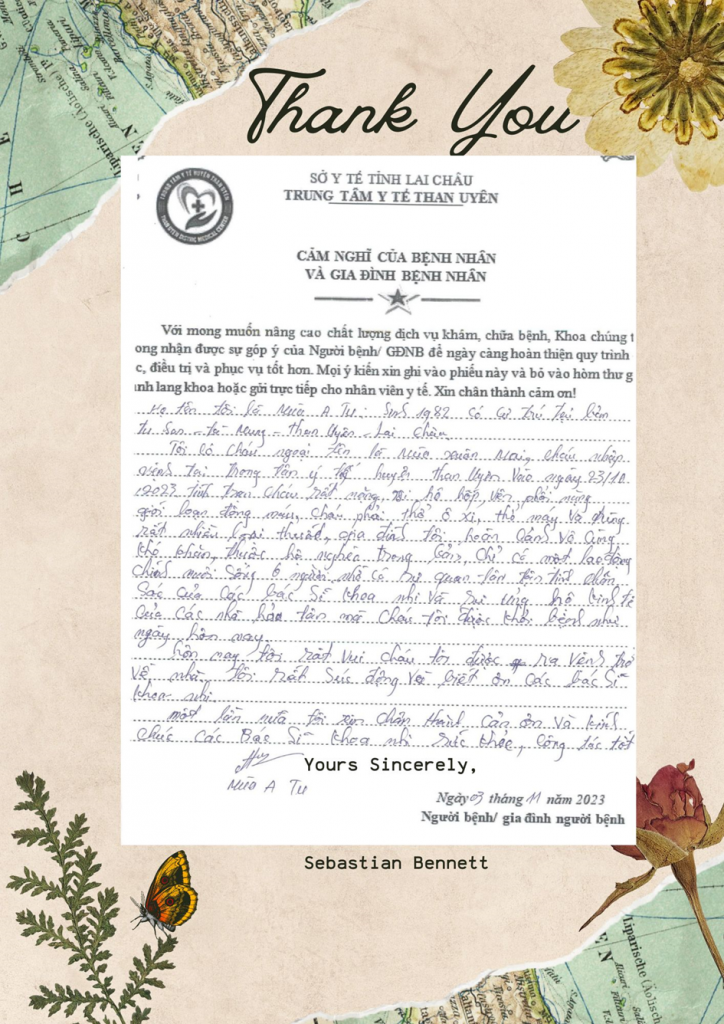 Thank You
TRUNG TÂM Y TẾ HUYỆN THAN UYÊN
THAN UYEN DISTRIC MEDICAL CENTER
SỞ Y TẾ TỈNH LAI CHÂU
TRUNG TÂM Y TẾ THAN UYÊN
CẢM NGHĨ CỦA BỆNH NHÂN
VÀ GIA ĐÌNH BỆNH NHÂN
Với mong muốn nâng cao chất lượng dịch vụ khám, chữa bệnh, Khoa chúng t
ong nhận được sự góp ý của Người bệnh/ GĐNB để ngày càng hoàn thiện quy trình
c, điều trị và phục vụ tốt hơn. Mọi ý kiến xin ghi vào phiếu này và bỏ vào hòm thư g
anh lang khoa hoặc gửi trực tiếp cho nhân viên y tế. Xin chân thành cảm ơn!
Họ tên tôi là Mùa A Tu. Sinh 1982 có cư trú tại bản
Tu San - Tà Mung - Than Uyên - Lai Châu
Tôi có cháu ngoại tên là Mùa Xuân Mai, cháu nhập
viện tại trung tâm y tế huyện Than Uyên vào ngày 23/10
2023 tình trạn cháu rất nặng, hô hấp, viên phổi nặng
loạn đông máu, cháu phải thở ô xi, thở máy và dùng
rất nhiều loại thuốc, gia đình tôi hoàn cảnh vô cùng
khó khăn, thuộc hộ nghèo trong bản, chỉ có một lao động
chính nuôi sống 6 người, nhờ có sự quan tâm tận tình chăm
sóc của các bác sĩ khoa nhi và sự ủng hộ kinh tế
của các nhà hảo tâm mà cháu tôi được khỏi bệnh như
ngày hôm nay.
hôm nay tôi rất vui cháu tôi được ra viện trở
về nhà, tôi rất xúc động và biết ơn các bác sĩ
khoa nhi.
một lần nữa tôi xin chân thành cản ơn và kính
chúc các Bác Sĩ khoa nhi sức khỏe, công tác tốt
Yours Sincerely,
Mùa A Tu
Ngày 03 tháng 11 năm 2023
Người bệnh/ gia đình người bệnh
Sebastian Bennett